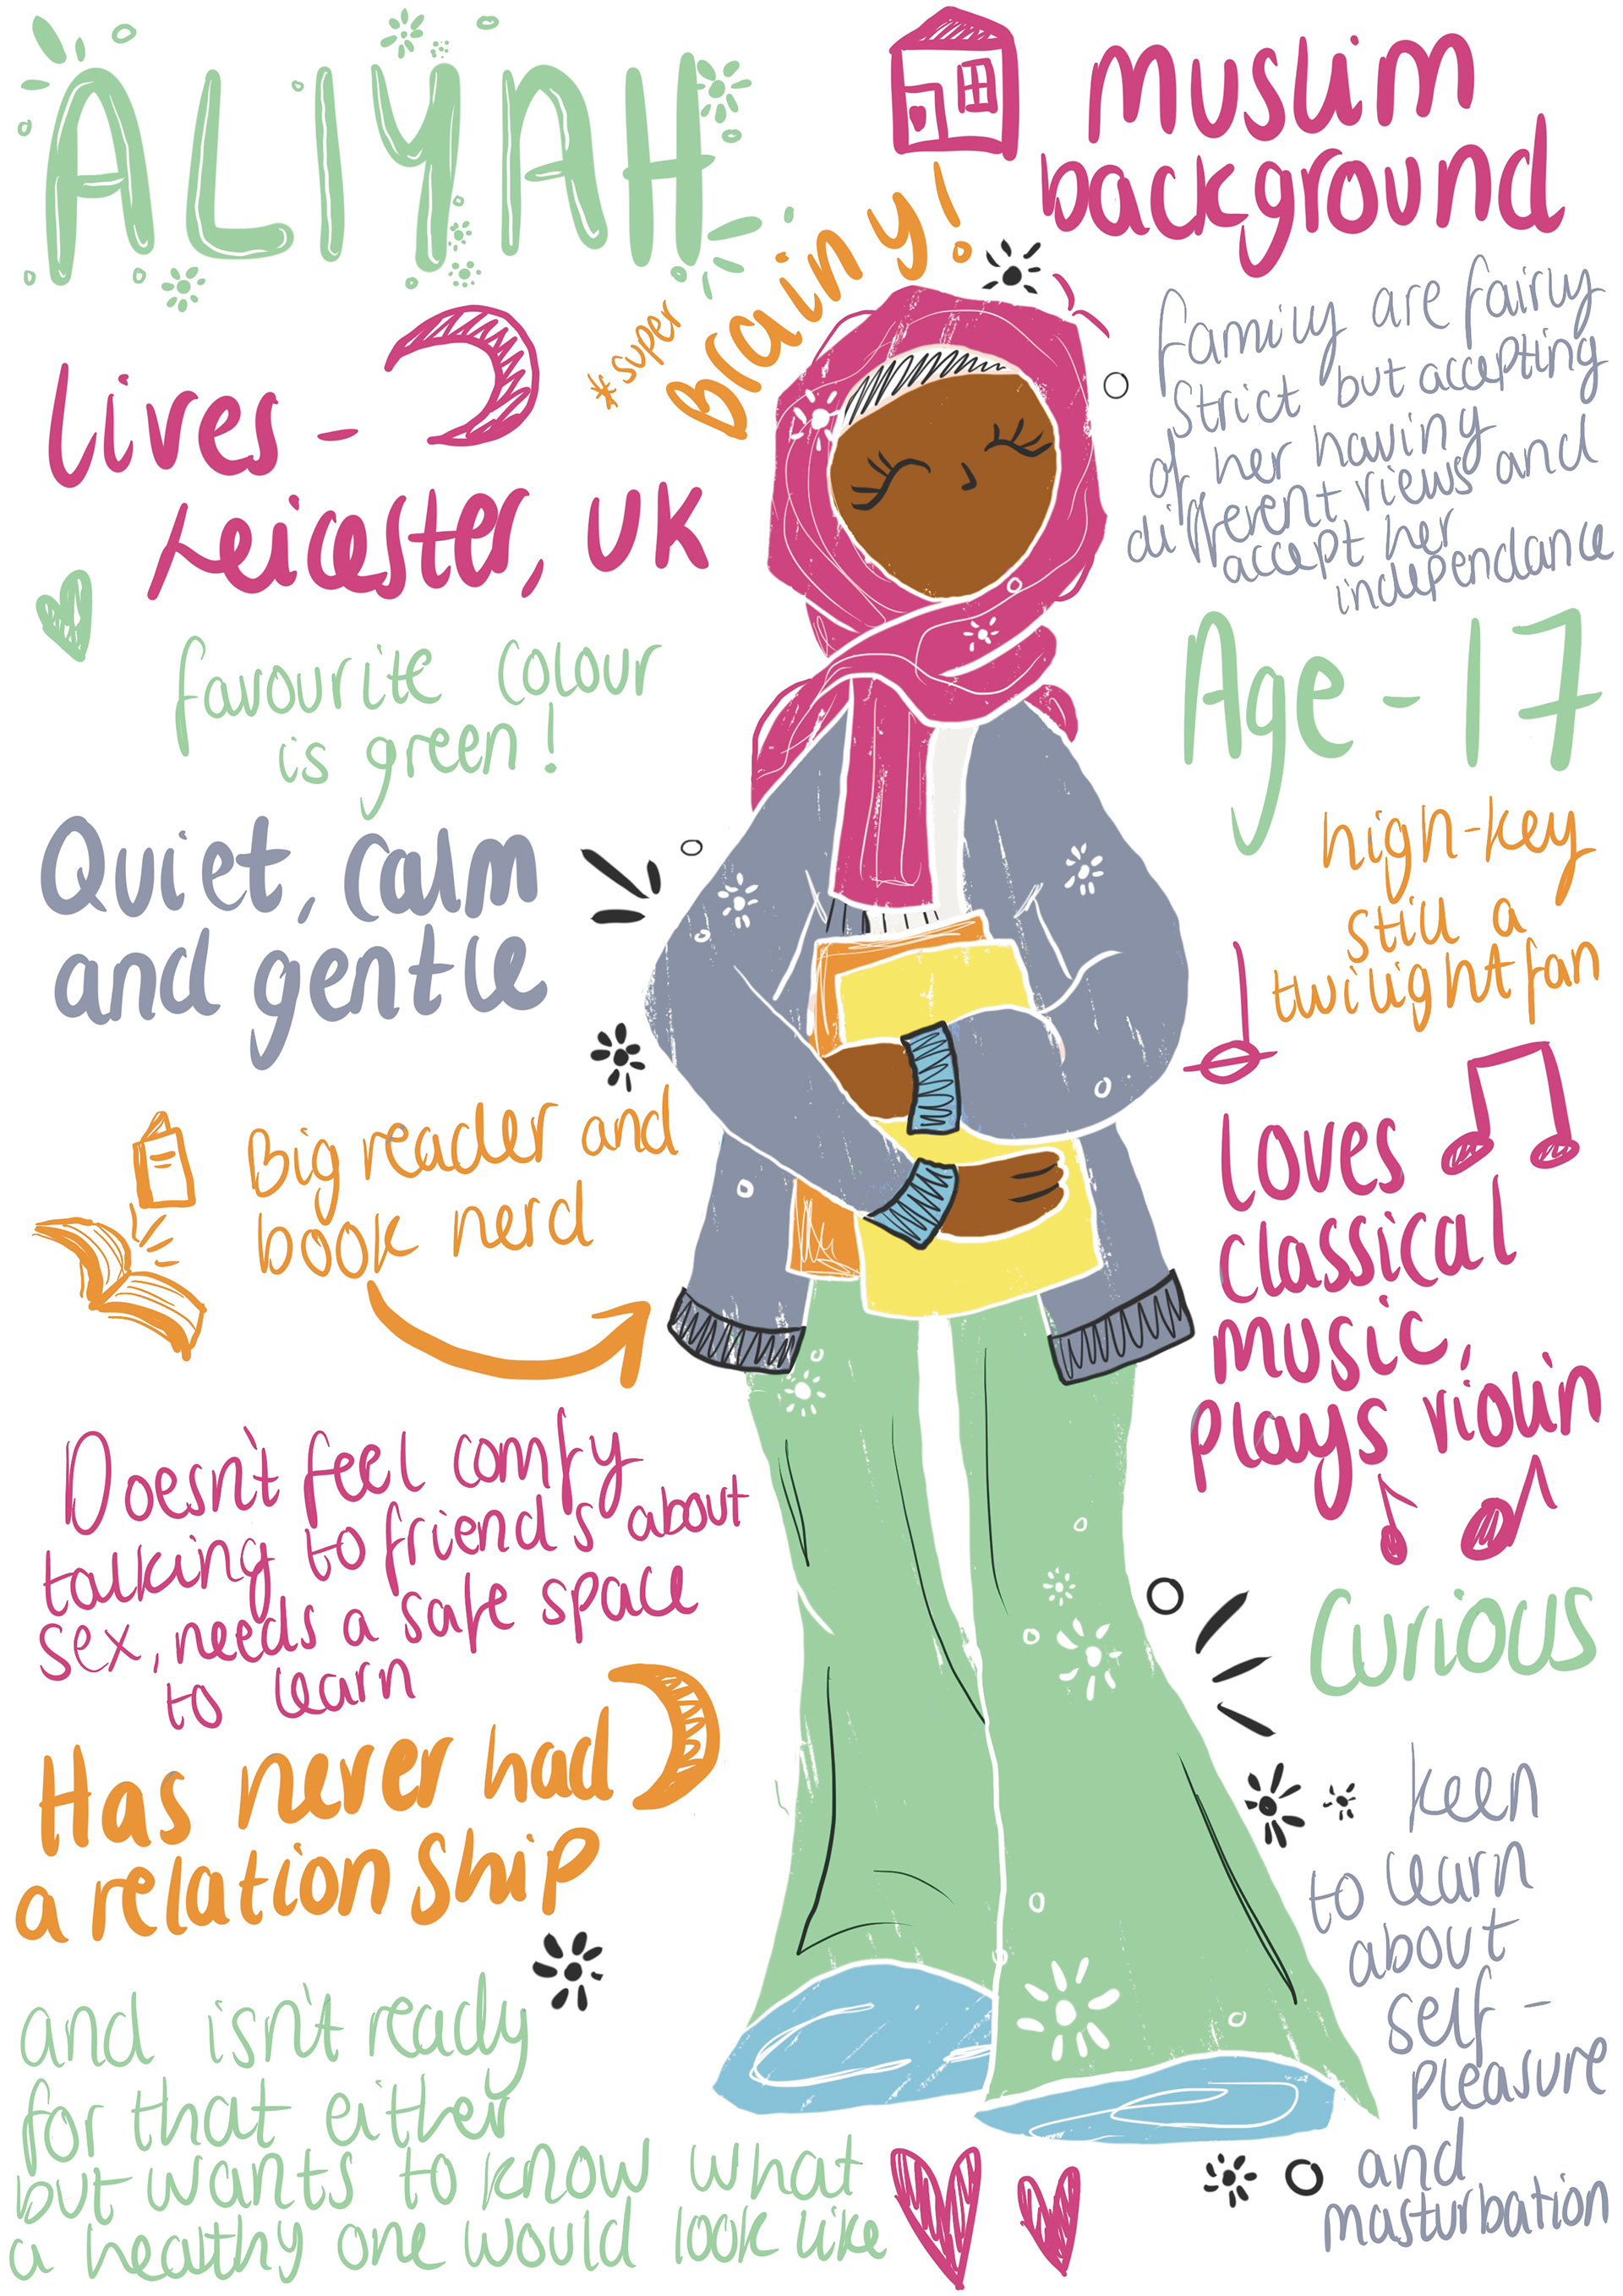 ALIYAH
muslim
background
#super
Brainy!
family are fairly
strict but accepting
of her having
different views and
accept her
independance
Lives -
Leicester, UK
favourite colour
is green!
Age - 17
Quiet, calm
and gentle
high-key
still a
twilight fan
Big reader and
book nerd
Loves
classical
music,
plays violin
Doesn't feel comfy
talking to friend's about
sex, needs a safe space
to learn
Curious
Has never had
a relationship
keen
to learn
about
self-
pleasure
and
masturbation
and isn't ready
for that either
but wants to know what
a healthy one would look like